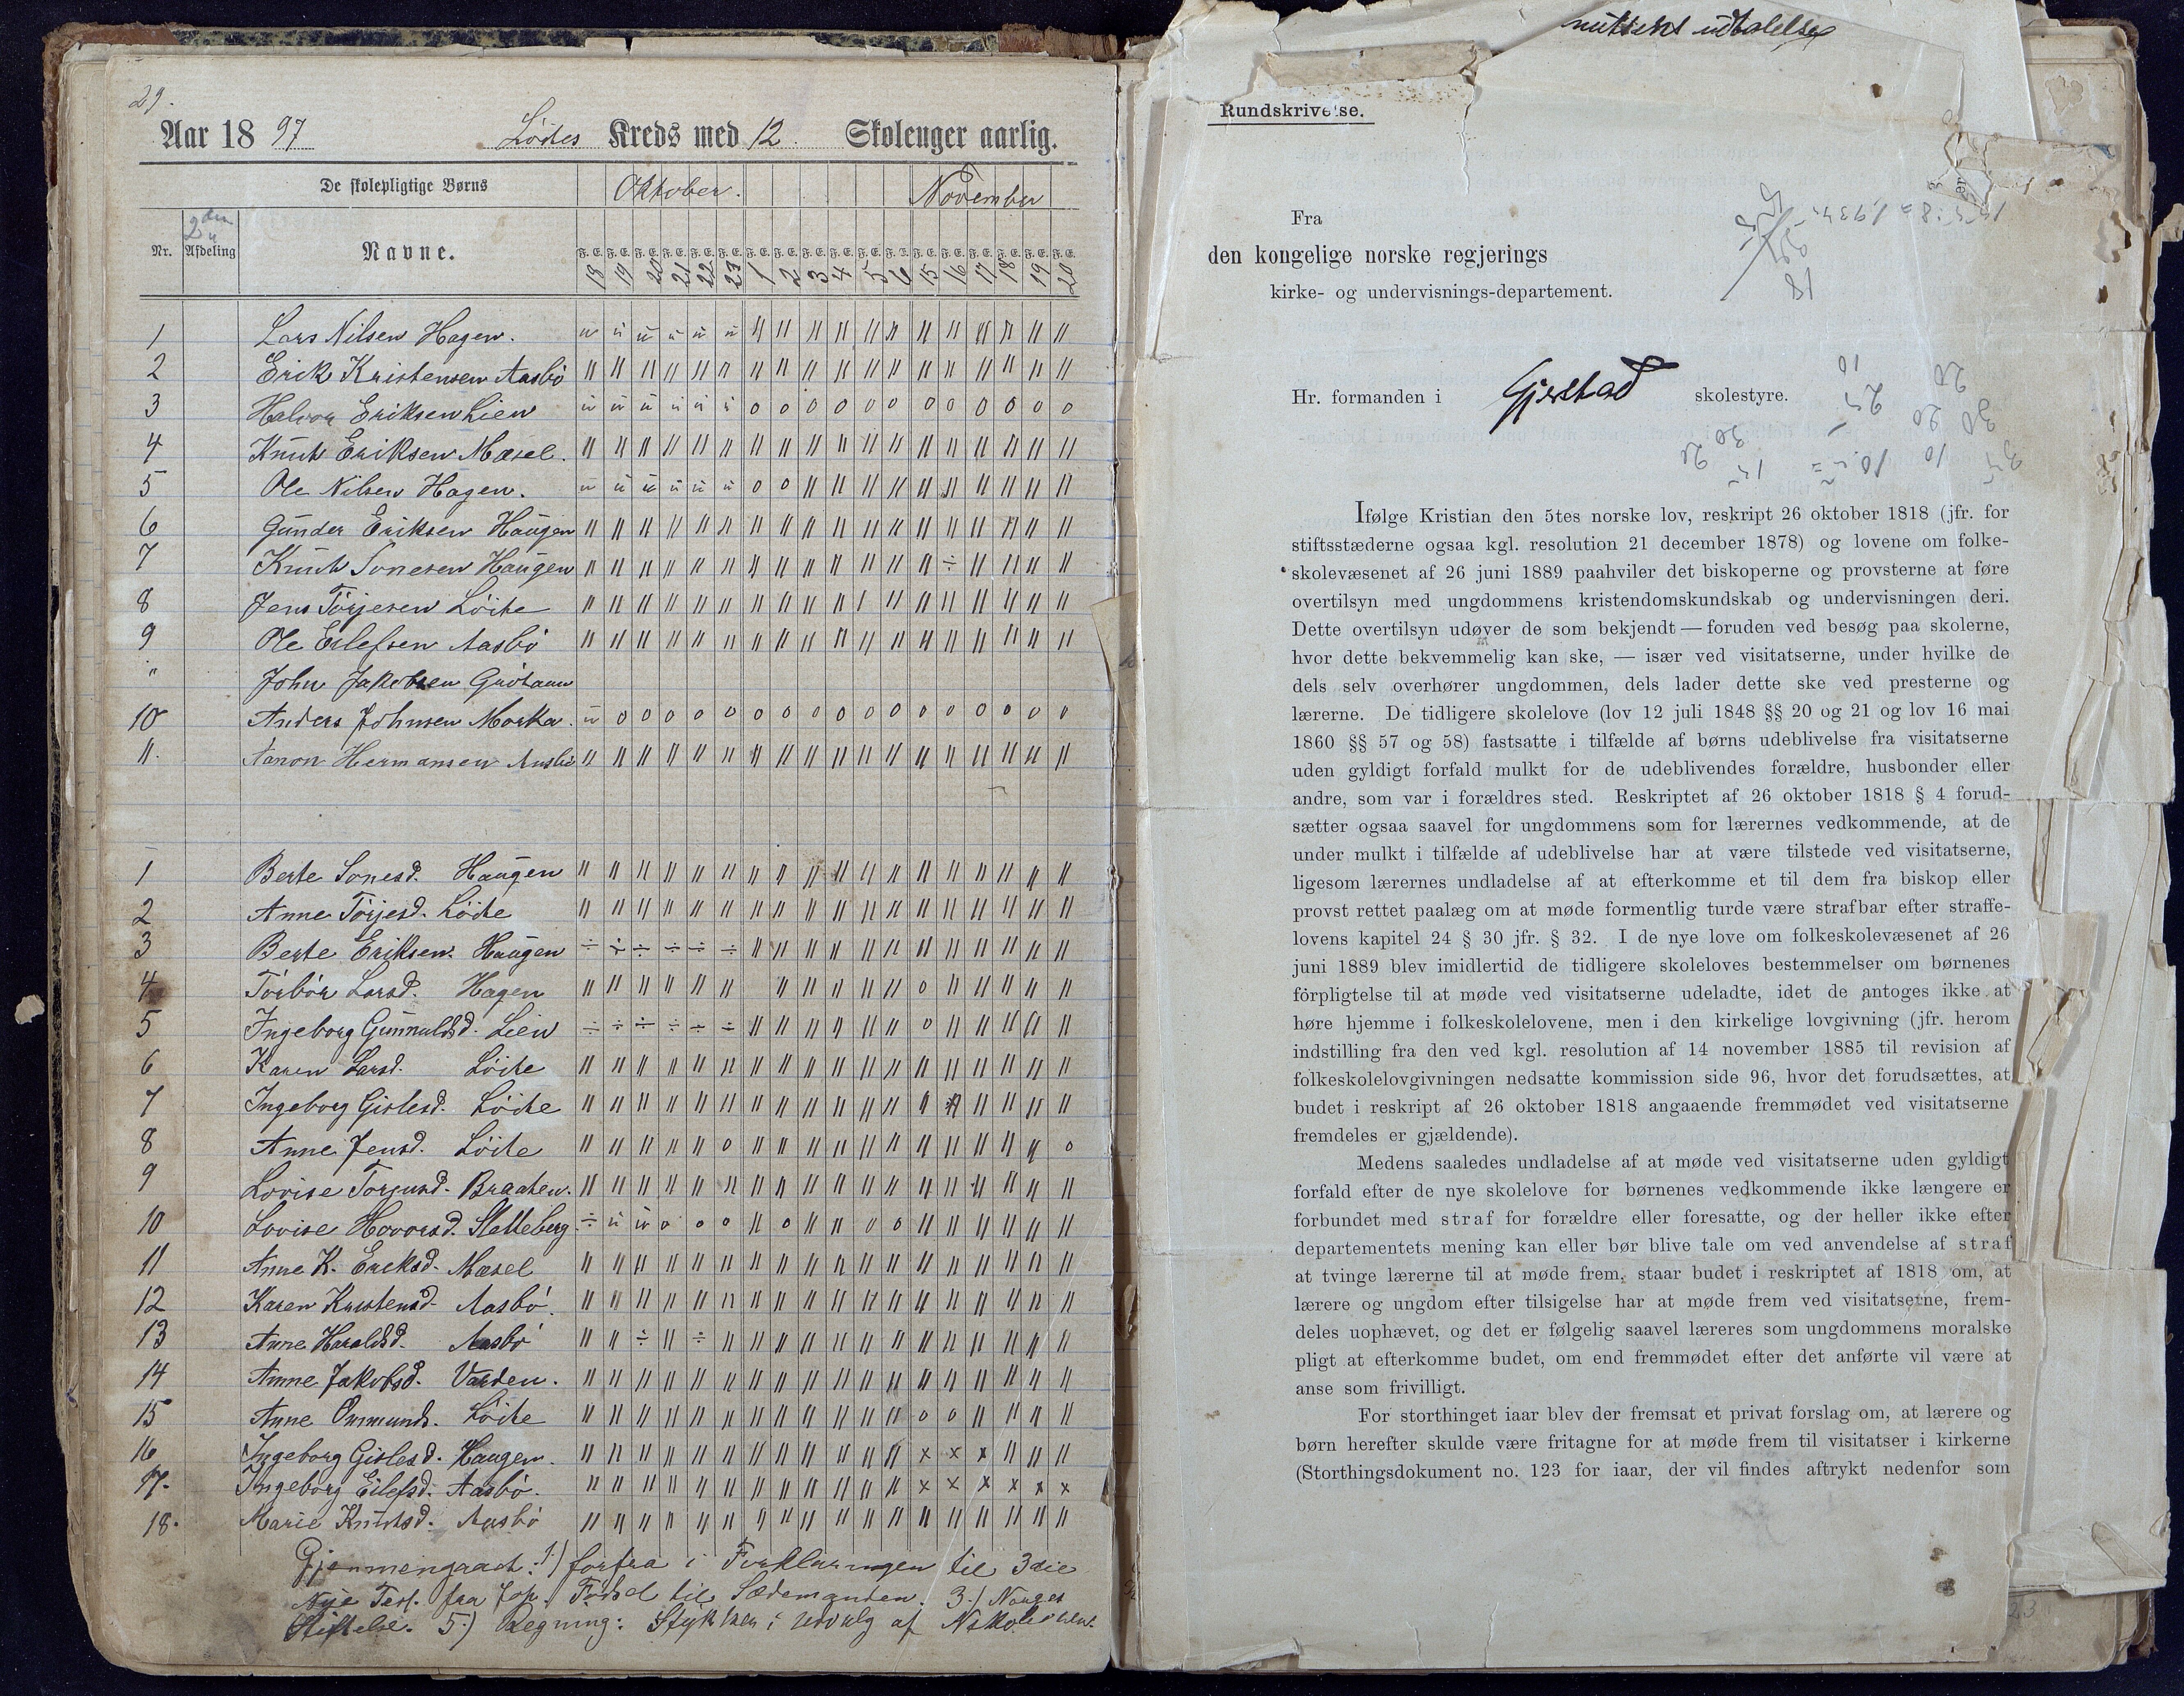 29.
Aar 1897 Löites Kreds med 12. Skoleuger aarlig.
De skolepligtige Børns Oktober. November
Nr. 2den Afdeling Navne. F. E. 18 19 20 21 22 23 1 2 3 4 5 6 15 16 17 18 19 20
1 Lars Nilsen Hagen.
2 Erik Kristensen Aasbö
3 Halvor Eriksen Lien
4 Knut Eriksen Mæsel.
5 Ole Nilsen Hagen.
6 Gunder Eriksen Haugen
7 Knut Sonesen Haugen
8 Jens Törjesen Löite
9 Ole Eilefsen Aasbö
" John Jakobsen
10 Anders Johnsen Morka.
11. Aanon Hermansen Aasbö
1 Berte Sonesd. Haugen
2 Anne Törjesd. Löite
3 Berte Eriksen. Haugen
4 Törbör Larsd. Hagen
5 Ingeborg Gunnulfsd. Lien
6 Karen Larsd. Löite
7 Ingeborg Gislesd. Löite
8 Anne Jensd. Löite
9 Lovise Torjusd. Braaten.
10 Lovise Hovorsd. Sletteberg
11 Anne K. Eriksd. Mæsel
12 Karen Kristensd. Aasbö.
13 Anne Haraldsd. Aasbö
14 Anne Jakobsd. Varden.
15 Anne Ommunds. Löite
16 Ingeborg Gislesd. Haugen.
17. Ingeborg Eilefsd. Aasbö.
18. Marie Knutsd. Aasbö
Gjennemgaaet: 1.) forfra i Forklaringen til 3die
Nye Test. fra Födsel til Sædemanden. 3.) Norges
Stiftelse. 5.) Regning: Stykker i udvalg af
udtalelse
Rundskrivelse.
Fra
den kongelige norske regjerings
kirke- og undervisnings-departement.
Hr. formanden i Gjerstad skolestyre.
Ifølge Kristian den 5tes norske lov, reskript 26 oktober 1818 (jfr. for
stiftsstæderne ogsaa kgl. resolution 21 december 1878) og lovene om folke-
skolevæsenet af 26 juni 1889 paahviler det biskoperne og provsterne at føre
overtilsyn med ungdommens kristendomskundskab og undervisningen deri.
Dette overtilsyn udøver de som bekjendt — foruden ved besøg paa skolerne,
hvor dette bekvemmelig kan ske, — især ved visitatserne, under hvilke de
dels selv overhører ungdommen, dels lader dette ske ved presterne og
lærerne. De tidligere skolelove (lov 12 juli 1848 §§ 20 og 21 og lov 16 mai
1860 §§ 57 og 58) fastsatte i tilfælde af børns udeblivelse fra visitatserne
uden gyldigt forfald mulkt for de udeblivendes forældre, husbonder eller
andre, som var i forældres sted. Reskriptet af 26 oktober 1818 § 4 forud-
sætter ogsaa saavel for ungdommens som for lærernes vedkommende, at de
under mulkt i tilfælde af udeblivelse har at være tilstede ved visitatserne,
ligesom lærernes undladelse af at efterkomme et til dem fra biskop eller
provst rettet paalæg om at møde formentlig turde være strafbar efter straffe-
lovens kapitel 24 § 30 jfr. § 32. I de nye love om folkeskolevæsenet af 26
juni 1889 blev imidlertid de tidligere skoleloves bestemmelser om børnenes
førpligtelse til at møde ved visitatserne udeladte, idet de antoges ikke at
høre hjemme i folkeskolelovene, men i den kirkelige lovgivning (jfr. herom
indstilling fra den ved kgl. resolution af 14 november 1885 til revision af
folkeskolelovgivningen nedsatte kommission side 96, hvor det forudsættes, at
budet i reskript af 26 oktober 1818 angaaende fremmødet ved visitatserne
fremdeles er gjældende).
Medens saaledes undladelse af at møde ved visitatserne uden gyldigt
forfald efter de nye skolelove for børnenes vedkommende ikke længere er
forbundet med straf for forældre eller foresatte, og der heller ikke efter
departementets mening kan eller bør blive tale om ved anvendelse af straf
at tvinge lærerne til at møde frem, staar budet i reskriptet af 1818 om, at
lærere og ungdom efter tilsigelse har at møde frem ved visitatserne, frem-
deles uophævet, og det er følgelig saavel læreres som ungdommens moralske
pligt at efterkomme budet, om end fremmødet efter det anførte vil være at
anse som frivilligt.
For storthinget iaar blev der fremsat et privat forslag om, at lærere og
børn herefter skulde være fritagne for at møde frem til visitatser i kirkerne
(Storthingsdokument no. 123 for iaar, der vil findes aftrykt nedenfor som